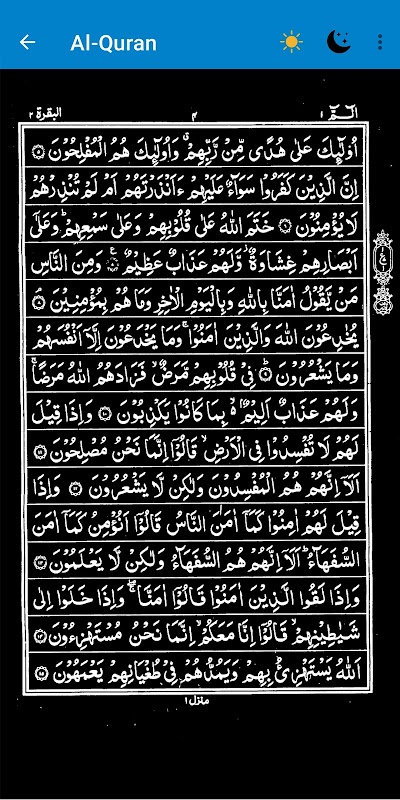 Al-Quran
الٓمّٓ ١
٣
البقرة ٢
اُولٰٓئِكَ عَلٰى هُدًى مِّنْ رَّبِّهِمْ ۙ وَاُولٰٓئِكَ هُمُ الْمُفْلِحُوْنَ ۝٥
اِنَّ الَّذِيْنَ كَفَرُوْا سَوَآءٌ عَلَيْهِمْ ءَاَنْذَرْتَهُمْ اَمْ لَمْ تُنْذِرْهُمْ
لَا يُؤْمِنُوْنَ ۝٦ خَتَمَ اللّٰهُ عَلٰى قُلُوْبِهِمْ وَعَلٰى سَمْعِهِمْ ؕ وَعَلٰٓى
اَبْصَارِهِمْ غِشَاوَةٌ ؗ وَّلَهُمْ عَذَابٌ عَظِيْمٌ ۝٧ وَمِنَ النَّاسِ
مَنْ يَّقُوْلُ اٰمَنَّا بِاللّٰهِ وَبِالْيَوْمِ الْاٰخِرِ وَمَا هُمْ بِمُؤْمِنِيْنَ ۝٨
يُخٰدِعُوْنَ اللّٰهَ وَالَّذِيْنَ اٰمَنُوْا ۚ وَمَا يَخْدَعُوْنَ اِلَّاۤ اَنْفُسَهُمْ
وَمَا يَشْعُرُوْنَ ۝٩ فِيْ قُلُوْبِهِمْ مَّرَضٌ ۙ فَزَادَهُمُ اللّٰهُ مَرَضًا ۚ
وَلَهُمْ عَذَابٌ اَلِيْمٌ ۙ۬ بِمَا كَانُوْا يَكْذِبُوْنَ ۝١٠ وَاِذَا قِيْلَ
لَهُمْ لَا تُفْسِدُوْا فِى الْاَرْضِ ۙ قَالُوْۤا اِنَّمَا نَحْنُ مُصْلِحُوْنَ ۝١١
اَلَاۤ اِنَّهُمْ هُمُ الْمُفْسِدُوْنَ وَلٰكِنْ لَّا يَشْعُرُوْنَ ۝١٢ وَاِذَا
قِيْلَ لَهُمْ اٰمِنُوْا كَمَاۤ اٰمَنَ النَّاسُ قَالُوْۤا اَنُؤْمِنُ كَمَاۤ اٰمَنَ
السُّفَهَآءُ ؕ اَلَاۤ اِنَّهُمْ هُمُ السُّفَهَآءُ وَلٰكِنْ لَّا يَعْلَمُوْنَ ۝١٣
وَاِذَا لَقُوا الَّذِيْنَ اٰمَنُوْا قَالُوْۤا اٰمَنَّا ۖۚ وَاِذَا خَلَوْا اِلٰى
شَيٰطِيْنِهِمْ ۙ قَالُوْۤا اِنَّا مَعَكُمْ ۙ اِنَّمَا نَحْنُ مُسْتَهْزِءُوْنَ ۝١٤
اَللّٰهُ يَسْتَهْزِئُ بِهِمْ وَيَمُدُّهُمْ فِيْ طُغْيَانِهِمْ يَعْمَهُوْنَ ۝١٥
منزل ١